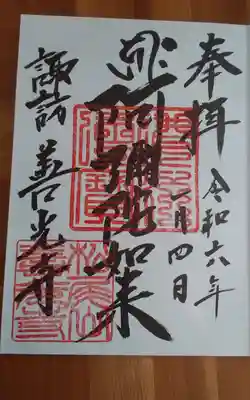 奉拝
令和六年
一月四日
阿彌陀如来
諏訪善光寺